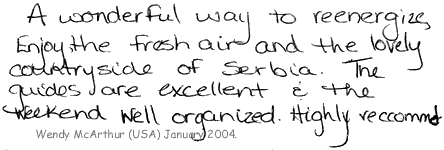 A wonderful way to reenergize,
Enjoy the fresh air and the lovely
countryside of Serbia. The
guides are excellent & the
weekend well organized. Highly reccomend
Wendy McArthur (USA) January 2004.